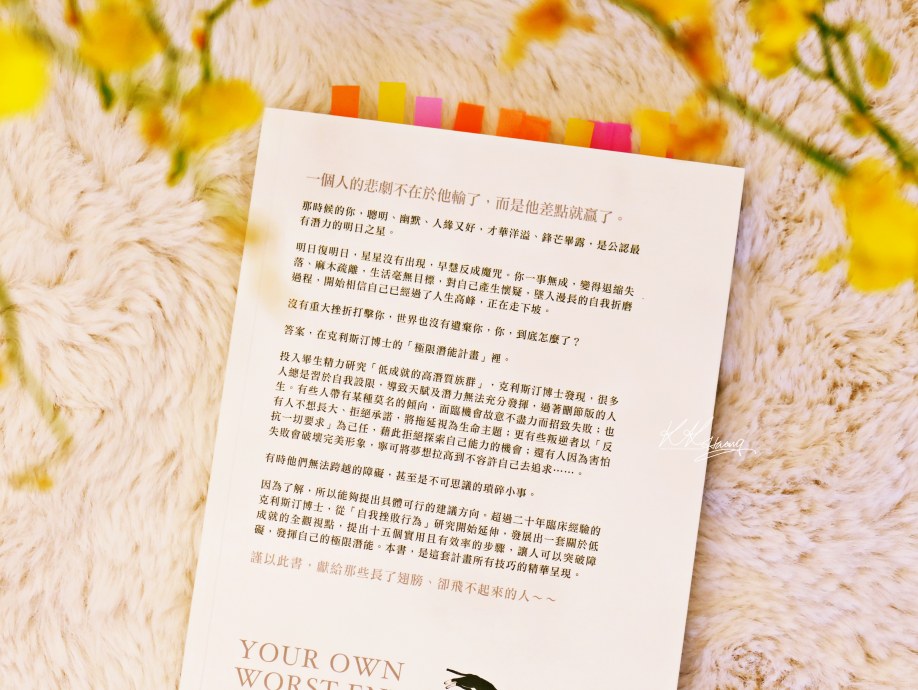 一個人的悲劇不在於他輸了，而是他差點就贏了。
那時候的你，聰明、幽默、人緣又好，才華洋溢、鋒芒畢露，是公認最
有潛力的明日之星。
明日復明日，星星沒有出現，早慧反成魔咒。你一事無成，變得退縮失
落、麻木疏離，生活毫無目標，對自己產生懷疑，墜入漫長的自我折磨
過程，開始相信自己已經過了人生高峰，正在走下坡。
沒有重大挫折打擊你、世界也沒有遺棄你，你，到底怎麼了？
答案，在克利斯汀博士的「極限潛能計畫」裡。
投入畢生精力研究「低成就的高潛質族群」，克利斯汀博士發現，很多
人總是習於自我設限，導致天賦及潛力無法充分發揮，過著刪節版的人
生。有些人帶有某種莫名的傾向，面臨機會故意不盡力而招致失敗；也
有人不想長大、拒絕承諾，將拖延視為生命主題；更有些叛逆者以「反
抗一切要求」為己任，藉此拒絕探索自己能力的機會；還有人因為害怕
失敗會破壞完美形象，寧可將夢想拉高到不容許自己去追求……。
有時他們無法跨越的障礙，甚至是不可思議的瑣碎小事。
因為了解，所以能夠提出具體可行的建議方向。超過二十年臨床經驗的
克利斯汀博士，從「自我挫敗行為」研究開始延伸，發展出一套關於低
成就的全觀視點，提出十五個實用且有效率的步驟，讓人可以突破障
礙，發揮自己的極限潛能。本書，是這套計畫所有技巧的精華呈現。
謹以此書，獻給那些長了翅膀，卻飛不起來的人～～
YOUR OWN
WORST EN